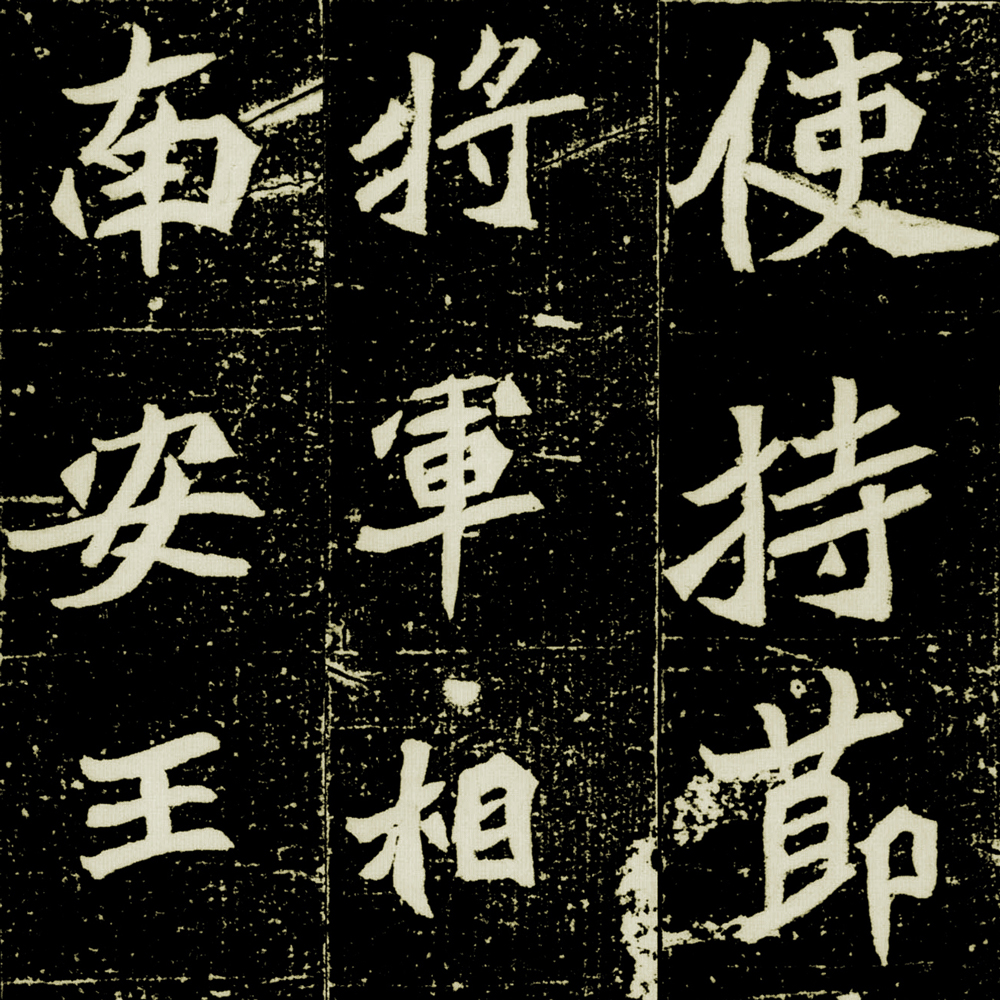 使持節
將軍相
南安王